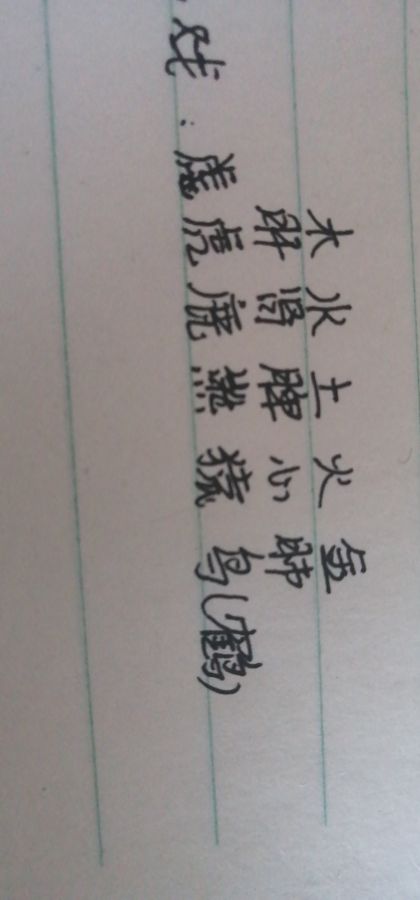 木 水 土 火 金
肝 肾 脾 心 肺
戏: 虎 鹿 熊 猿 鸟(鹤)